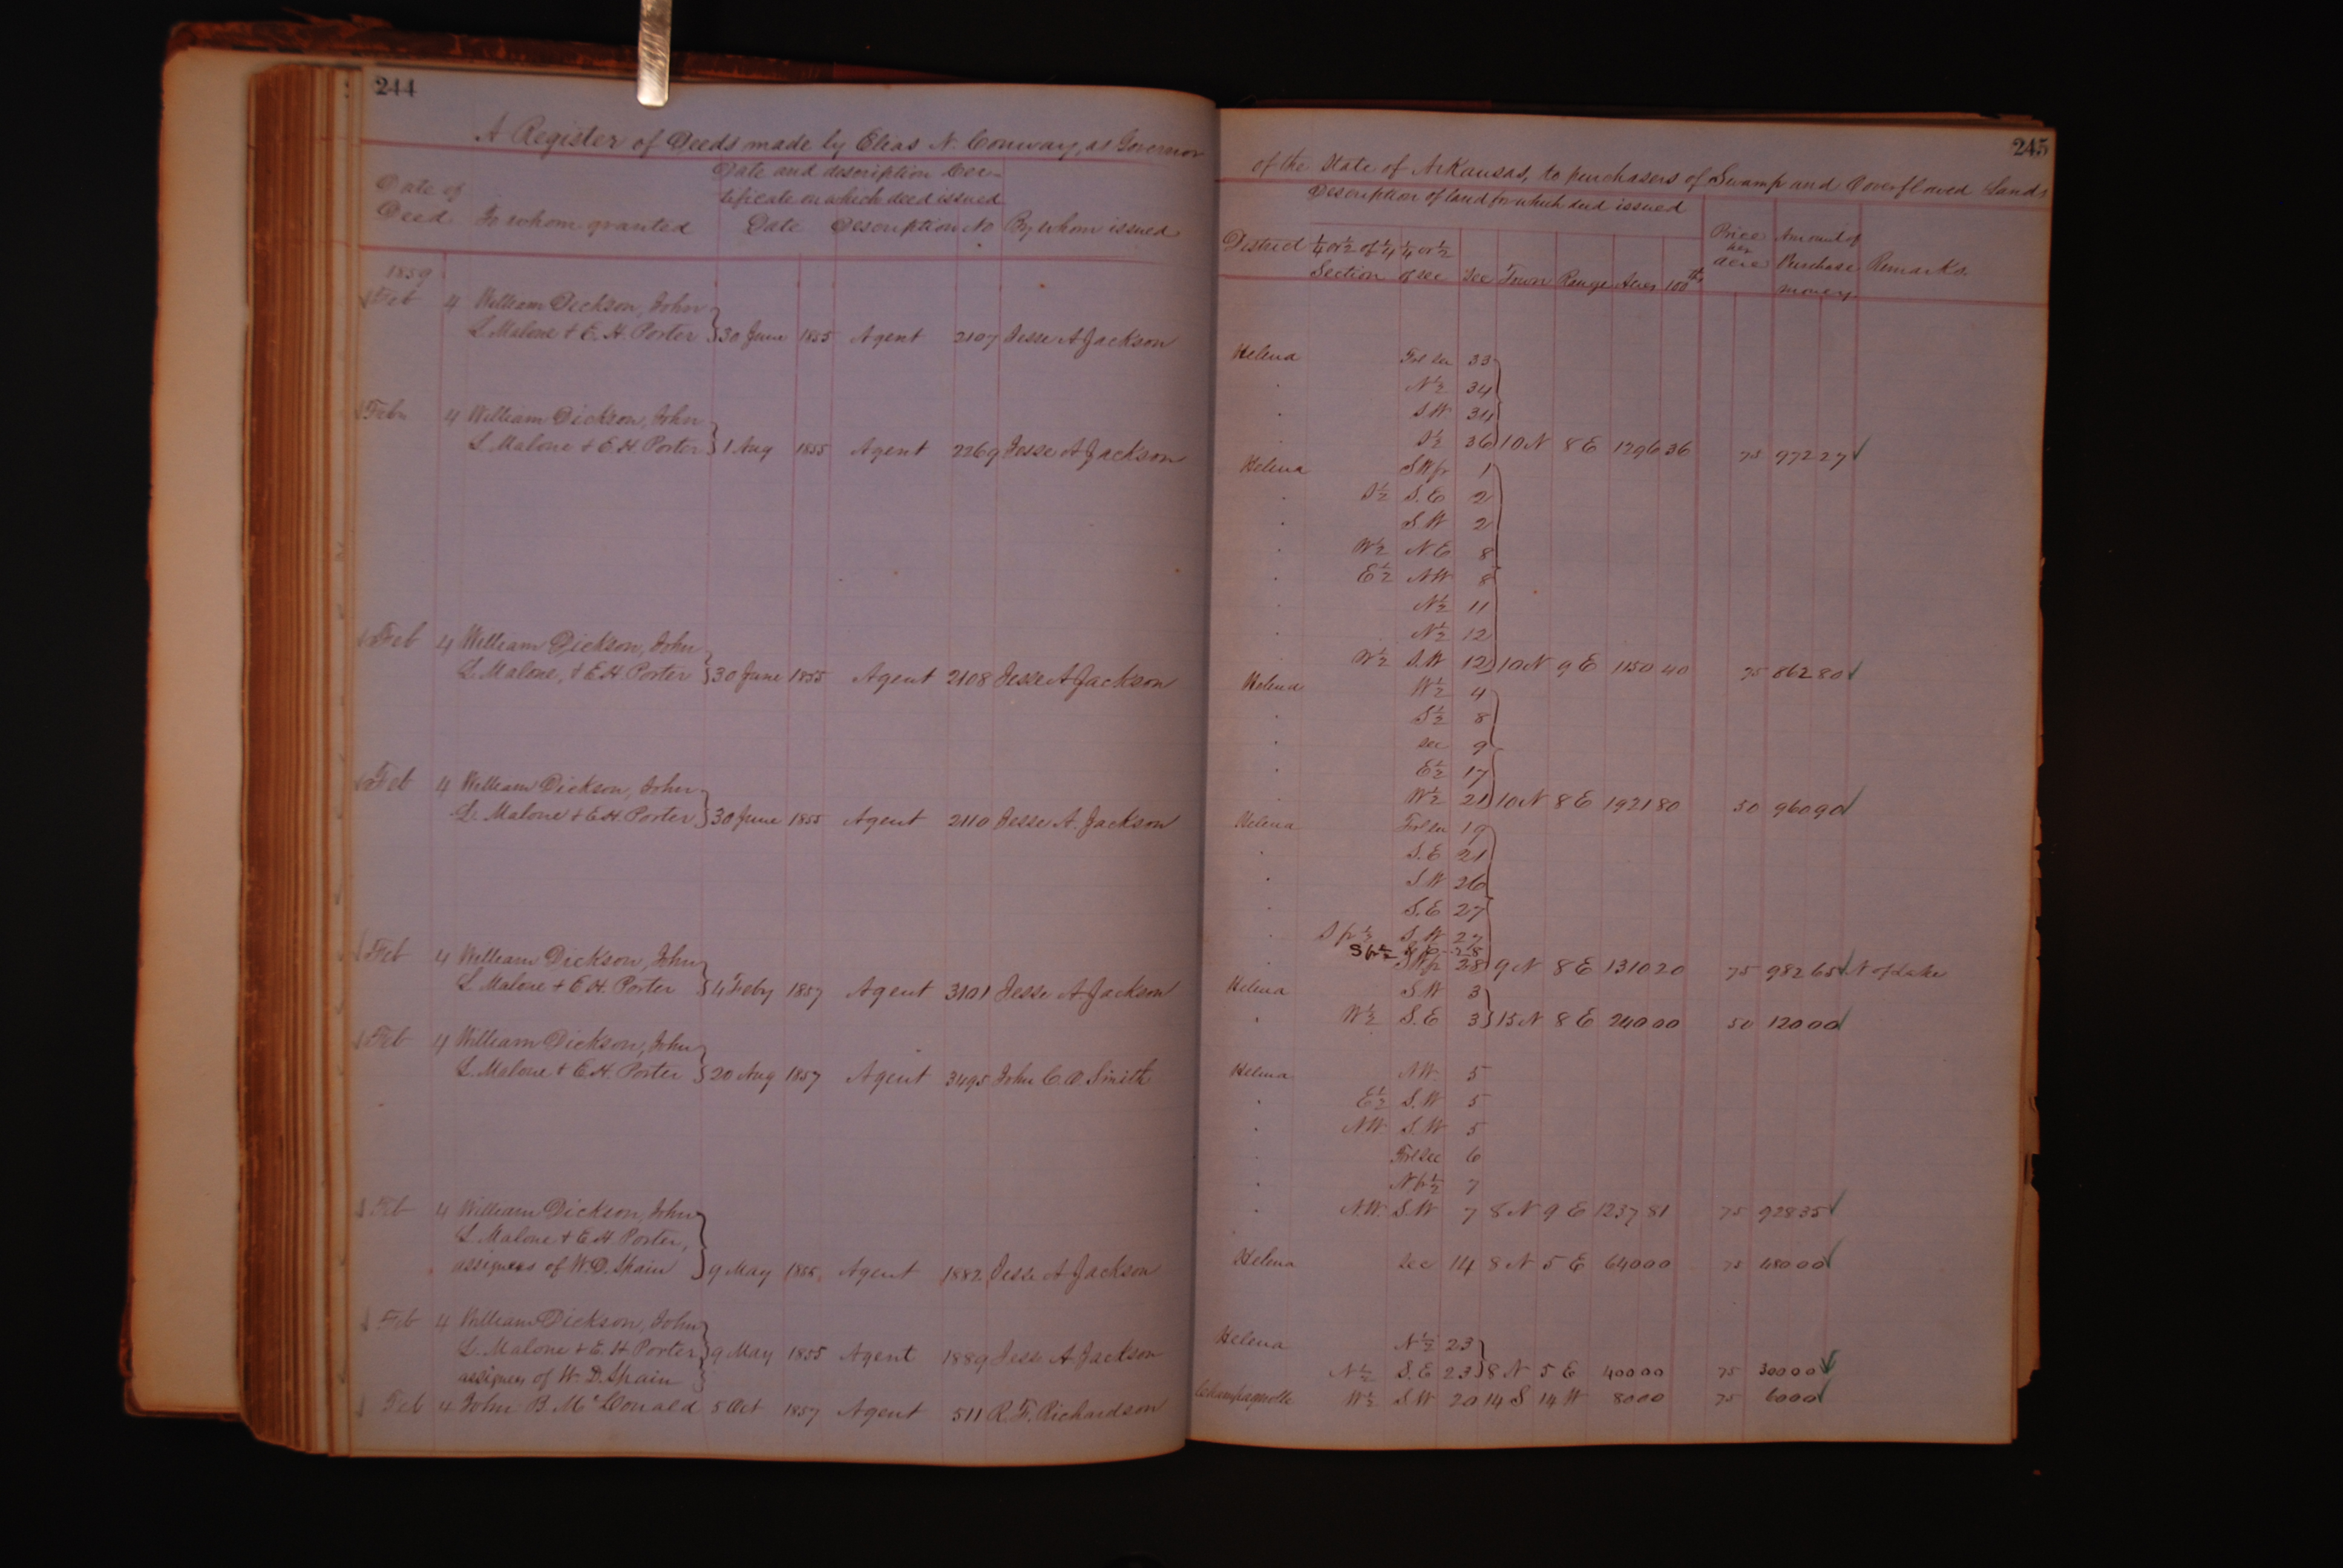 244
A Register of Deeds made by Elias N. Conway, as Governor
Date of Deed To whom granted Date and description Cer-
tificate on which deed issued
Date Description No By whom issued
1859
Feb 4 William Dickson, John
L. Malone & E. H. Porter 30 June 1855 Agent 2107 Jesse A Jackson
Feb 4 William Dickson, John
L. Malone & E. H. Porter 1 Aug 1855 Agent 2269 Jesse A Jackson
Feb 4 William Dickson, John
L. Malone, & E H Porter 30 June 1855 Agent 2108 Jesse A Jackson
Feb 4 William Dickson, John
L. Malone & E H. Porter 30 June 1855 Agent 2110 Jesse A. Jackson
Feb 4 William Dickson, John
L Malone & E H. Porter 4 Feby 1857 Agent 3101 Jesse A. Jackson
Feb 4 William Dickson, John
L. Malone & E H. Porter 20 Aug 1857 Agent 3495 John C. O. Smith
Feb 4 William Dickson, John
L. Malone & E H Porter,
assignees of W. D. Spain 9 May 1855 Agent 1882 Jesse A Jackson
Feb 4 William Dickson, John
L. Malone & E. H Porter 9 May 1855 Agent 1889 Jesse A Jackson
assignees of W. D. Spain
Feb 4 John B. McDonald 5 Oct 1857 Agent 511 R. F. Richardson
245
of the State of Arkansas, to purchasers of Swamp and Overflowed Lands
Description of land for which deed issued
District 1/4 or 1/2 of 1/4 1/4 or 1/2 Price per Acre Amount of
Section of sec Sec Town Range Acres 100ths Purchase Remarks.
money
Helena Frl sec 33
" N 1/2 34
" S.W 34
" S 1/2 36 10 N 8 E 1296 36 75 972 27
Helena S W fr 1
" S 1/2 S. E 2
" S W 2
" W 1/2 N E 8
" E 1/2 N W 8
" N 1/2 11
" N 1/2 12
" W 1/2 S. W 12 10 N 9 E 1150 40 75 862 80
Helena W 1/2 4
" S 1/2 8
" sec 9
" E 1/2 17
" W 1/2 21 10 N 8 E 1921 80 50 960 90
Helena Frl sec 19
" S. E 21
" S. W 26
" S. E 27
" S fr 1/2 S. W 27
S fr 1/2 S E 28
" S W fr 28 9 N 8 E 1310 20 75 982 65 N of Lake
Helena S. W 3
" W 1/2 S. E 3 15 N 8 E 240 00 50 120 00
Helena N W. 5
" E 1/2 S. W 5
" N W S. W 5
" Frl sec 6
" N fr 1/2 7
" N W S W 7 8 N 9 E 1237 81 75 928 35
Helena Sec 14 8 N 5 E 640 00 75 480 00
Helena N 1/2 23
N 1/2 S. E 23 8 N 5 E 400 00 75 300 00
Champagnolle W 1/2 S W 20 14 S 14 W 80 00 75 60 00